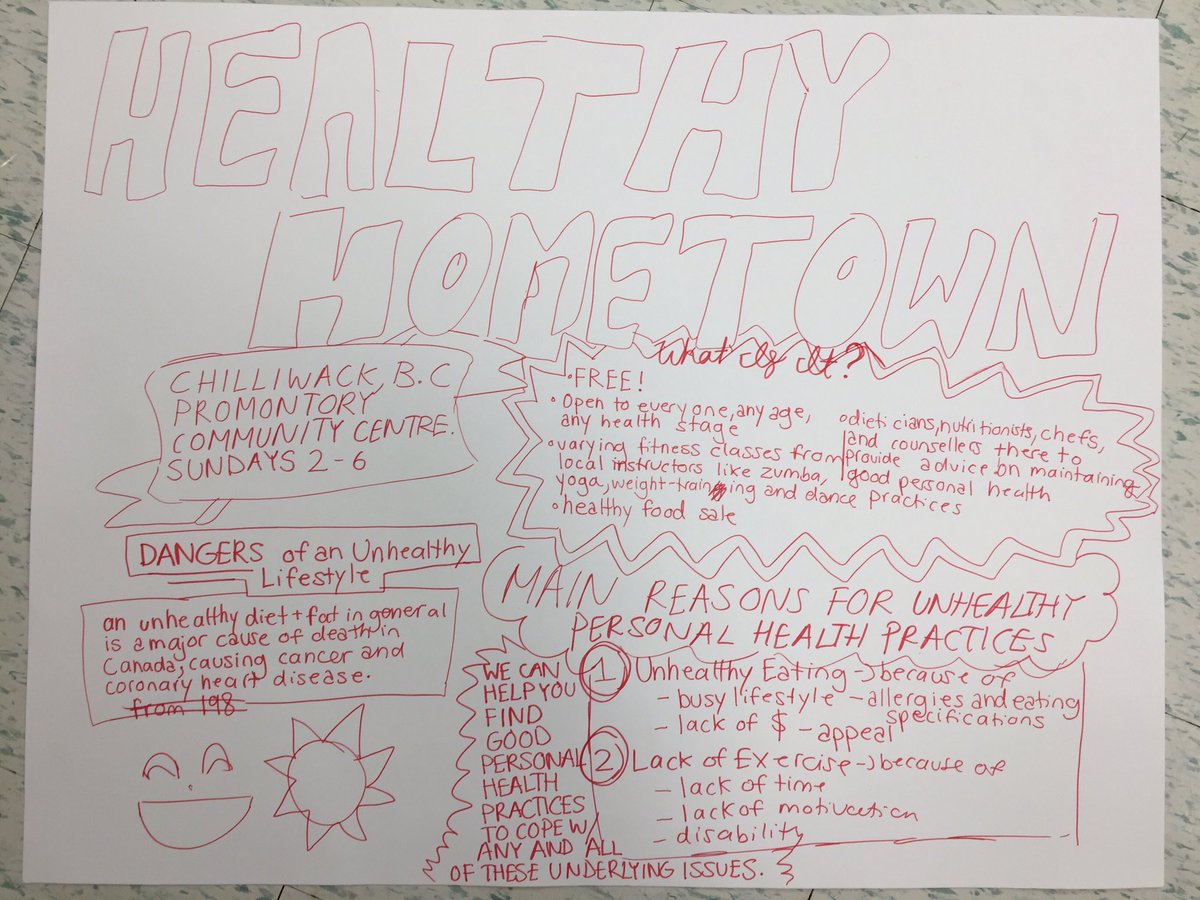 HEALTHY
HOMETOWN
CHILLIWACK, B.C
PROMONTORY
COMMUNITY CENTRE.
SUNDAYS 2-6
What Is It?
•FREE!
• Open to everyone, any age,
any health stage
•varying fitness classes from
local instructors like zumba,
yoga, weight-training and dance practices
•healthy food sale
•dieticians, nutritionists, chefs,
and counsellers there to
provide advice on maintaining
good personal health
DANGERS of an Unhealthy
Lifestyle
an unhealthy diet + fat in general
is a major cause of death in
Canada, causing cancer and
coronary heart disease.
from 198
MAIN REASONS FOR UNHEALTHY
PERSONAL HEALTH PRACTICES
1 Unhealthy Eating -> because of
- busy lifestyle - allergies and eating
specifications
- lack of $ - appeal
2 Lack of Exercise -> because of
- lack of time
- lack of motivation
- disability
WE CAN
HELP YOU
FIND
GOOD
PERSONAL
HEALTH
PRACTICES
TO COPE W/
ANY AND ALL
OF THESE UNDERLYING ISSUES.